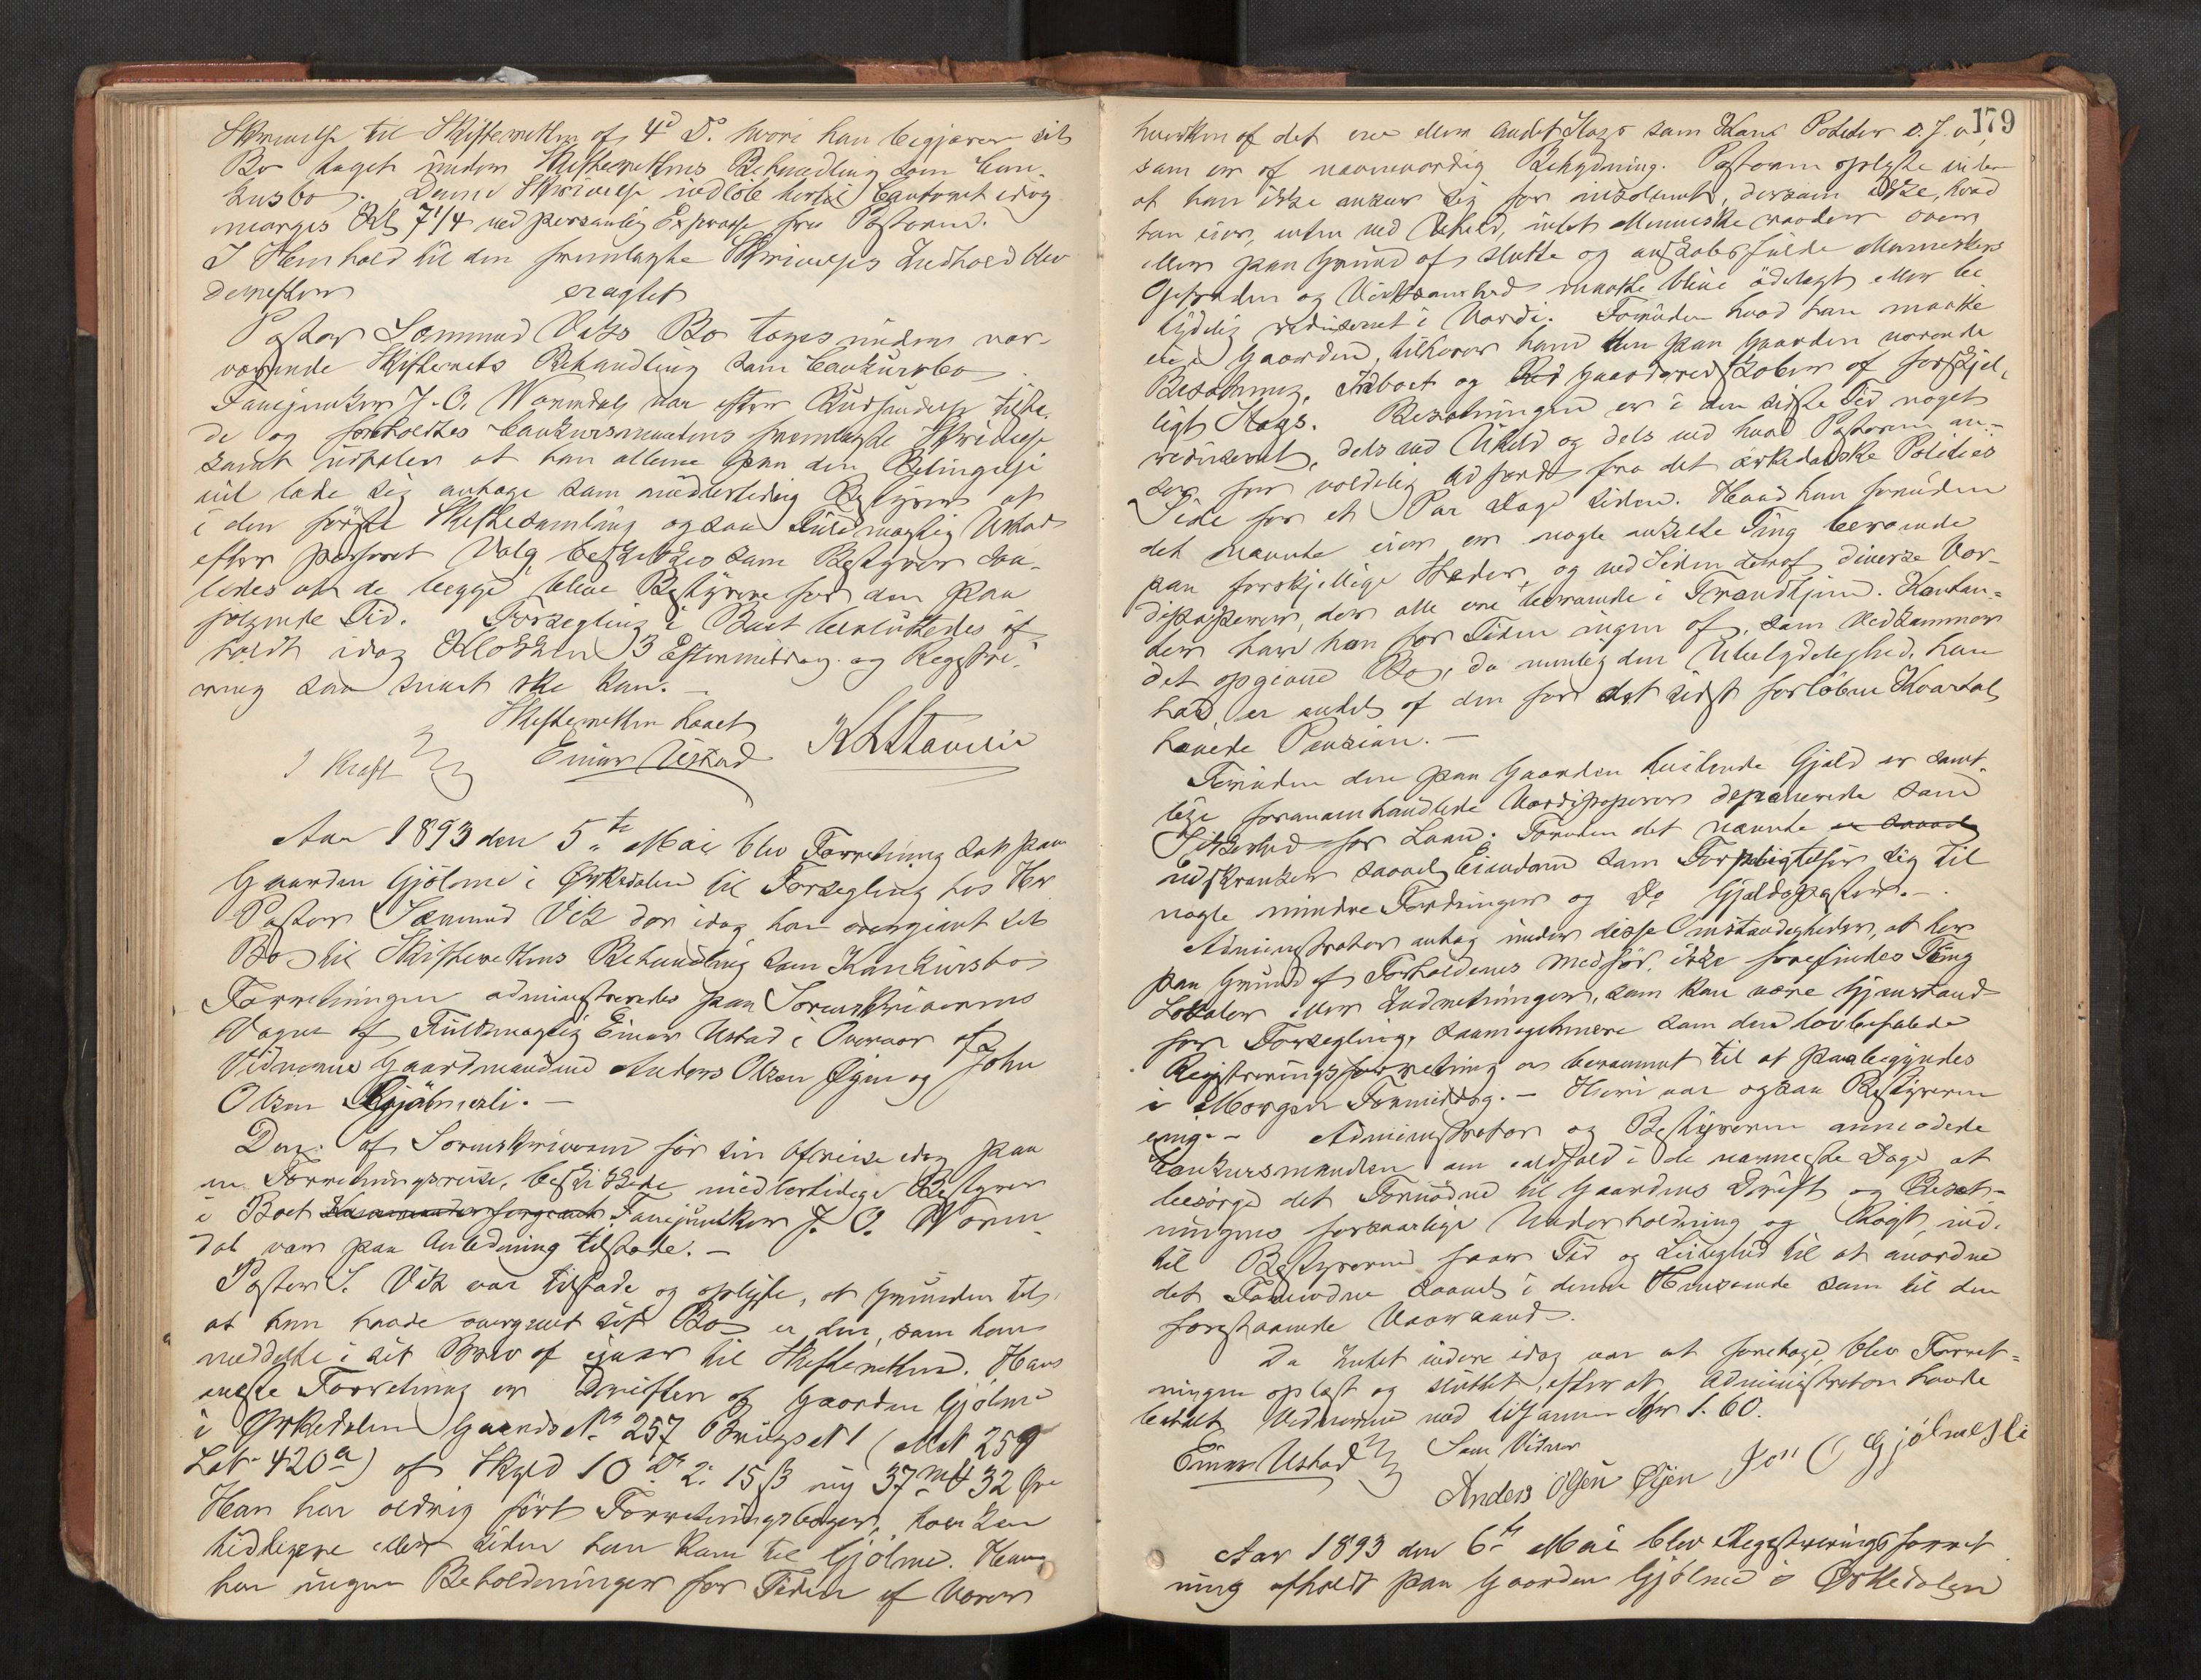 Skrivelse til Skifteretten af 4d Ds. hvori han begjærer sit
Bo taget under Skifterettens Behandling som Con-
kursbo. Denne Skrivelse indløb hertil Contoret idag
morges Kl 7 1/4 ved personlig Expresse fra Pastoren.
I Henhold til den fremlagte Skrivelses Indhold blev
derefter eragtet
Pastor Sæmund Viks Bo tages under nær-
værende Skifterets Behandling som Conkursbo.
Fanejunker J. O. Wormdal var efter Budsendelse tilste-
de og foreholdtes Conkursmandens fremlagte Skrivelse
samt udtaler at han allene paa den Betingelse
vil lade sig antage som midlertidig Bestyrer at
i den første Skiftesamling ogsaa Fuldmægtig Ustad
efter passeret Valg beskikkes som Bestyrer saa-
ledes at de begge blive Bestyrere for den paa
følgende Tid. Forsegling i Boet besluttedes af-
holdt idag Klokken 3 Eftermiddag og Registre-
ring saa snart ske kan. -
Skifteretten hævet
I Kraft Einar Ustad
Aar 1893 den 5te Mai blev Forretning sat paa
Gaarden Gjölme i Ørkedalen til Forsegling hos Hr
Pastor Sæmund Vik der idag har overgivet sit
Bo til Skifterettens Behandling som Konkursbo
Forretningen administreredes paa Sorenskriverens
Vegne af Fuldmægtig Einar Ustad i Overvær af
Vidnerne Gaardmændene Anders Olsen Øyen og John
Olsen Gjölmesli. -
Den af Sorenskriveren før sin Afreise idag paa
en Forretningsreise, beskikkede midlertidige Bestyrer
i Boet Fanejunker J. O. Worm-
dal var paa Anledning tilstede. -
Pastor S. Vik var tilstede og oplyste, at Grunden til
at han havde overgivet sit Bo er den, som han
meddelte i sit Brev af igaar til Skifteretten. Hans
eneste Forretning er Driften af Gaarden Gjölme
i Ørkedalen Gaards No 257 Brugs No 1 (Mat No 259
Lab 420a) af Skyld 10 Dr 2. 15 ß ny 37 Mk 32 Øre
Han har aldrig ført Forretningsbøger, hverken
tidligere eller siden han kom til Gjölme. Han
har ingen Beholdninger for Tiden af Varer
179
hverken af det ene eller andet Slags som Korn Poteter o. s. v,
som er af nævneværdig Betydning. Pastoren oplyste videre
at han ikke anser sig for insolvent, dersom ikke, hvad
han eier, enten ved Uheld, intet Menneske raader over,
eller paa Grund af slette og ondskabsfulde Menneskers
Opførsel og Virksomhed maatte blive ødelagt eller be
tydelig reduseret i Værdi. Foruden hvad han maatte
eie i Gaarden, tilhører ham den paa Gaarden værende
Besætning, Indboet og Gaardsredskaber af forskjel-
ligt Slags. Besætningen er i den sidste Tid noget
reduseret, dels ved Uheld og dels ved hvad Pastoren an-
ser for voldelig Adfærd fra det ørkedalske Polities
Side for et Par Dage siden. Hvad han foruden
det nævnte eier er nogle enkelte Ting beroende
paa forskjellige Steder, og ved Siden deraf diverse Vær-
dipapirer, der alle ere beroende i Trondhjem. Kontan-
ter har han for Tiden ingen af, som vedkommer
det opgivne Bo, da nemlig den Ubetydelighed, han
har, er endel af den for det sidst forløbne Kvartal
hævede Pension. -
Foruden den paa Gaarden heftende Gjæld er samt-
lige foranomhandlede Værdipapirer deponerede som
Sikkerhed for Laan. Foruden det nævnte
indskrænker saavel Eiendom som Forpligtelser sig til
nogle mindre Fordringer og Do Gjældsposter. -
Administrator antog under disse Omstændigheder, at her
paa Grund af Forholdenes Medfør, ikke forefindes Ting
Lokaler eller Indretninger, som kan være Gjenstand
for Forsegling, saameget mere som den lovbefalede
Registreringsforretning er berammet til at paabegyndes
i Morgen Formiddag. - Heri var ogsaa Bestyreren
enig. - Administrator og Bestyreren anmodede
Conkursmanden om ialdfald i de nærmeste Dage at
besørge det Fornødne til Gaardens Drift og Besæt-
ningens forsvarlige Underholdning og Røgt, ind-
til Bestyreren faar Tid og Leilighed til at anordne
det Fornødne saavel i denne Henseende som til den
forestaaende Vaaraand.
Da Intet videre idag var at foretage, blev Forret-
ningen oplæst og sluttet, efter at Administrator havde
betalt Vidnerne med tilsammen Kr 1.60.
Einar Ustad Som Vidner
Anders Olsen Øyen Jon O Gjölmesli
Aar 1893 den 6te Mai blev Registreringsforret
ning afholdt paa Gaarden Gjölme i Ørkedalen